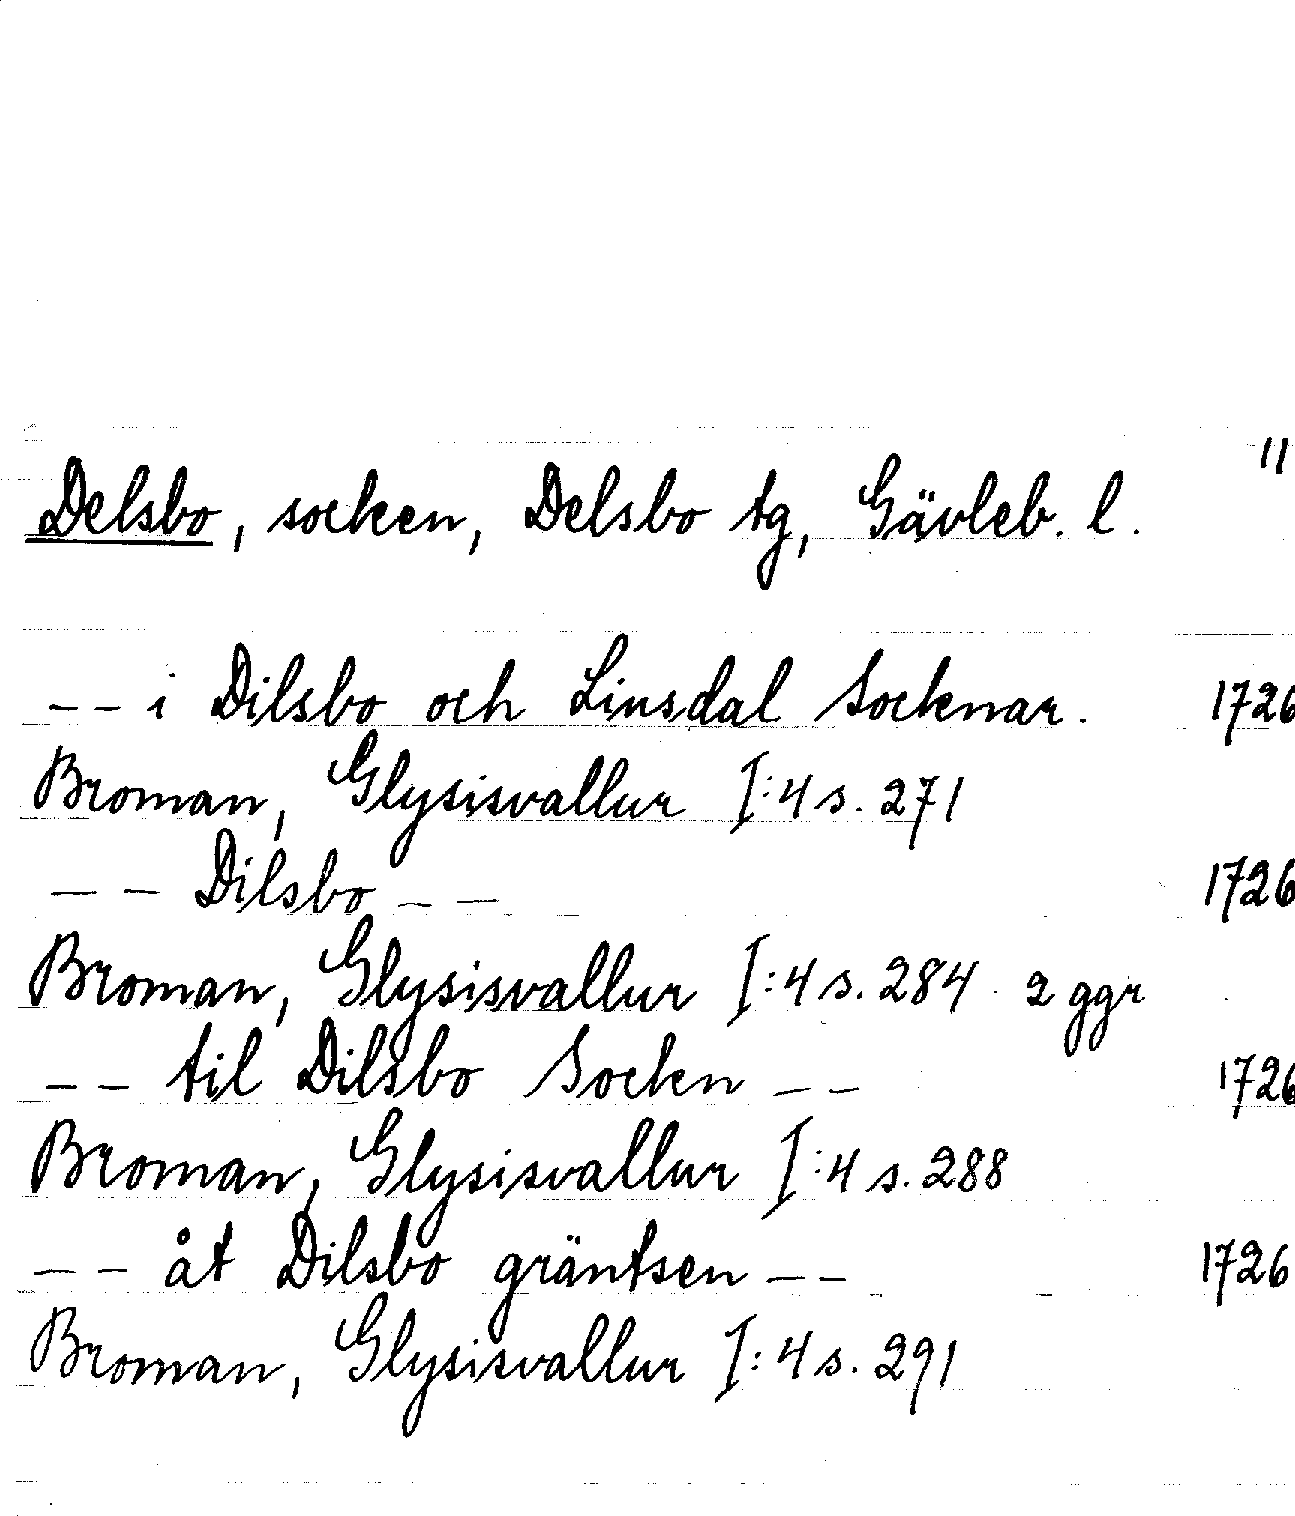 11
Delsbo, socken, Delsbo tg, Gävleb. l.
-- i Dilsbo och Linsdal Socknar. 1726
Broman, Glysisvallur I:4 s. 271
-- Dilsbo -- 1726
Broman, Glysisvallur I:4 s. 284 2 ggr
-- til Dilsbo Sockn -- 1726
Broman, Glysisvallur I:4 s. 288
-- åt Dilsbo gräntsen -- 1726
Broman, Glysisvallur I:4 s. 291